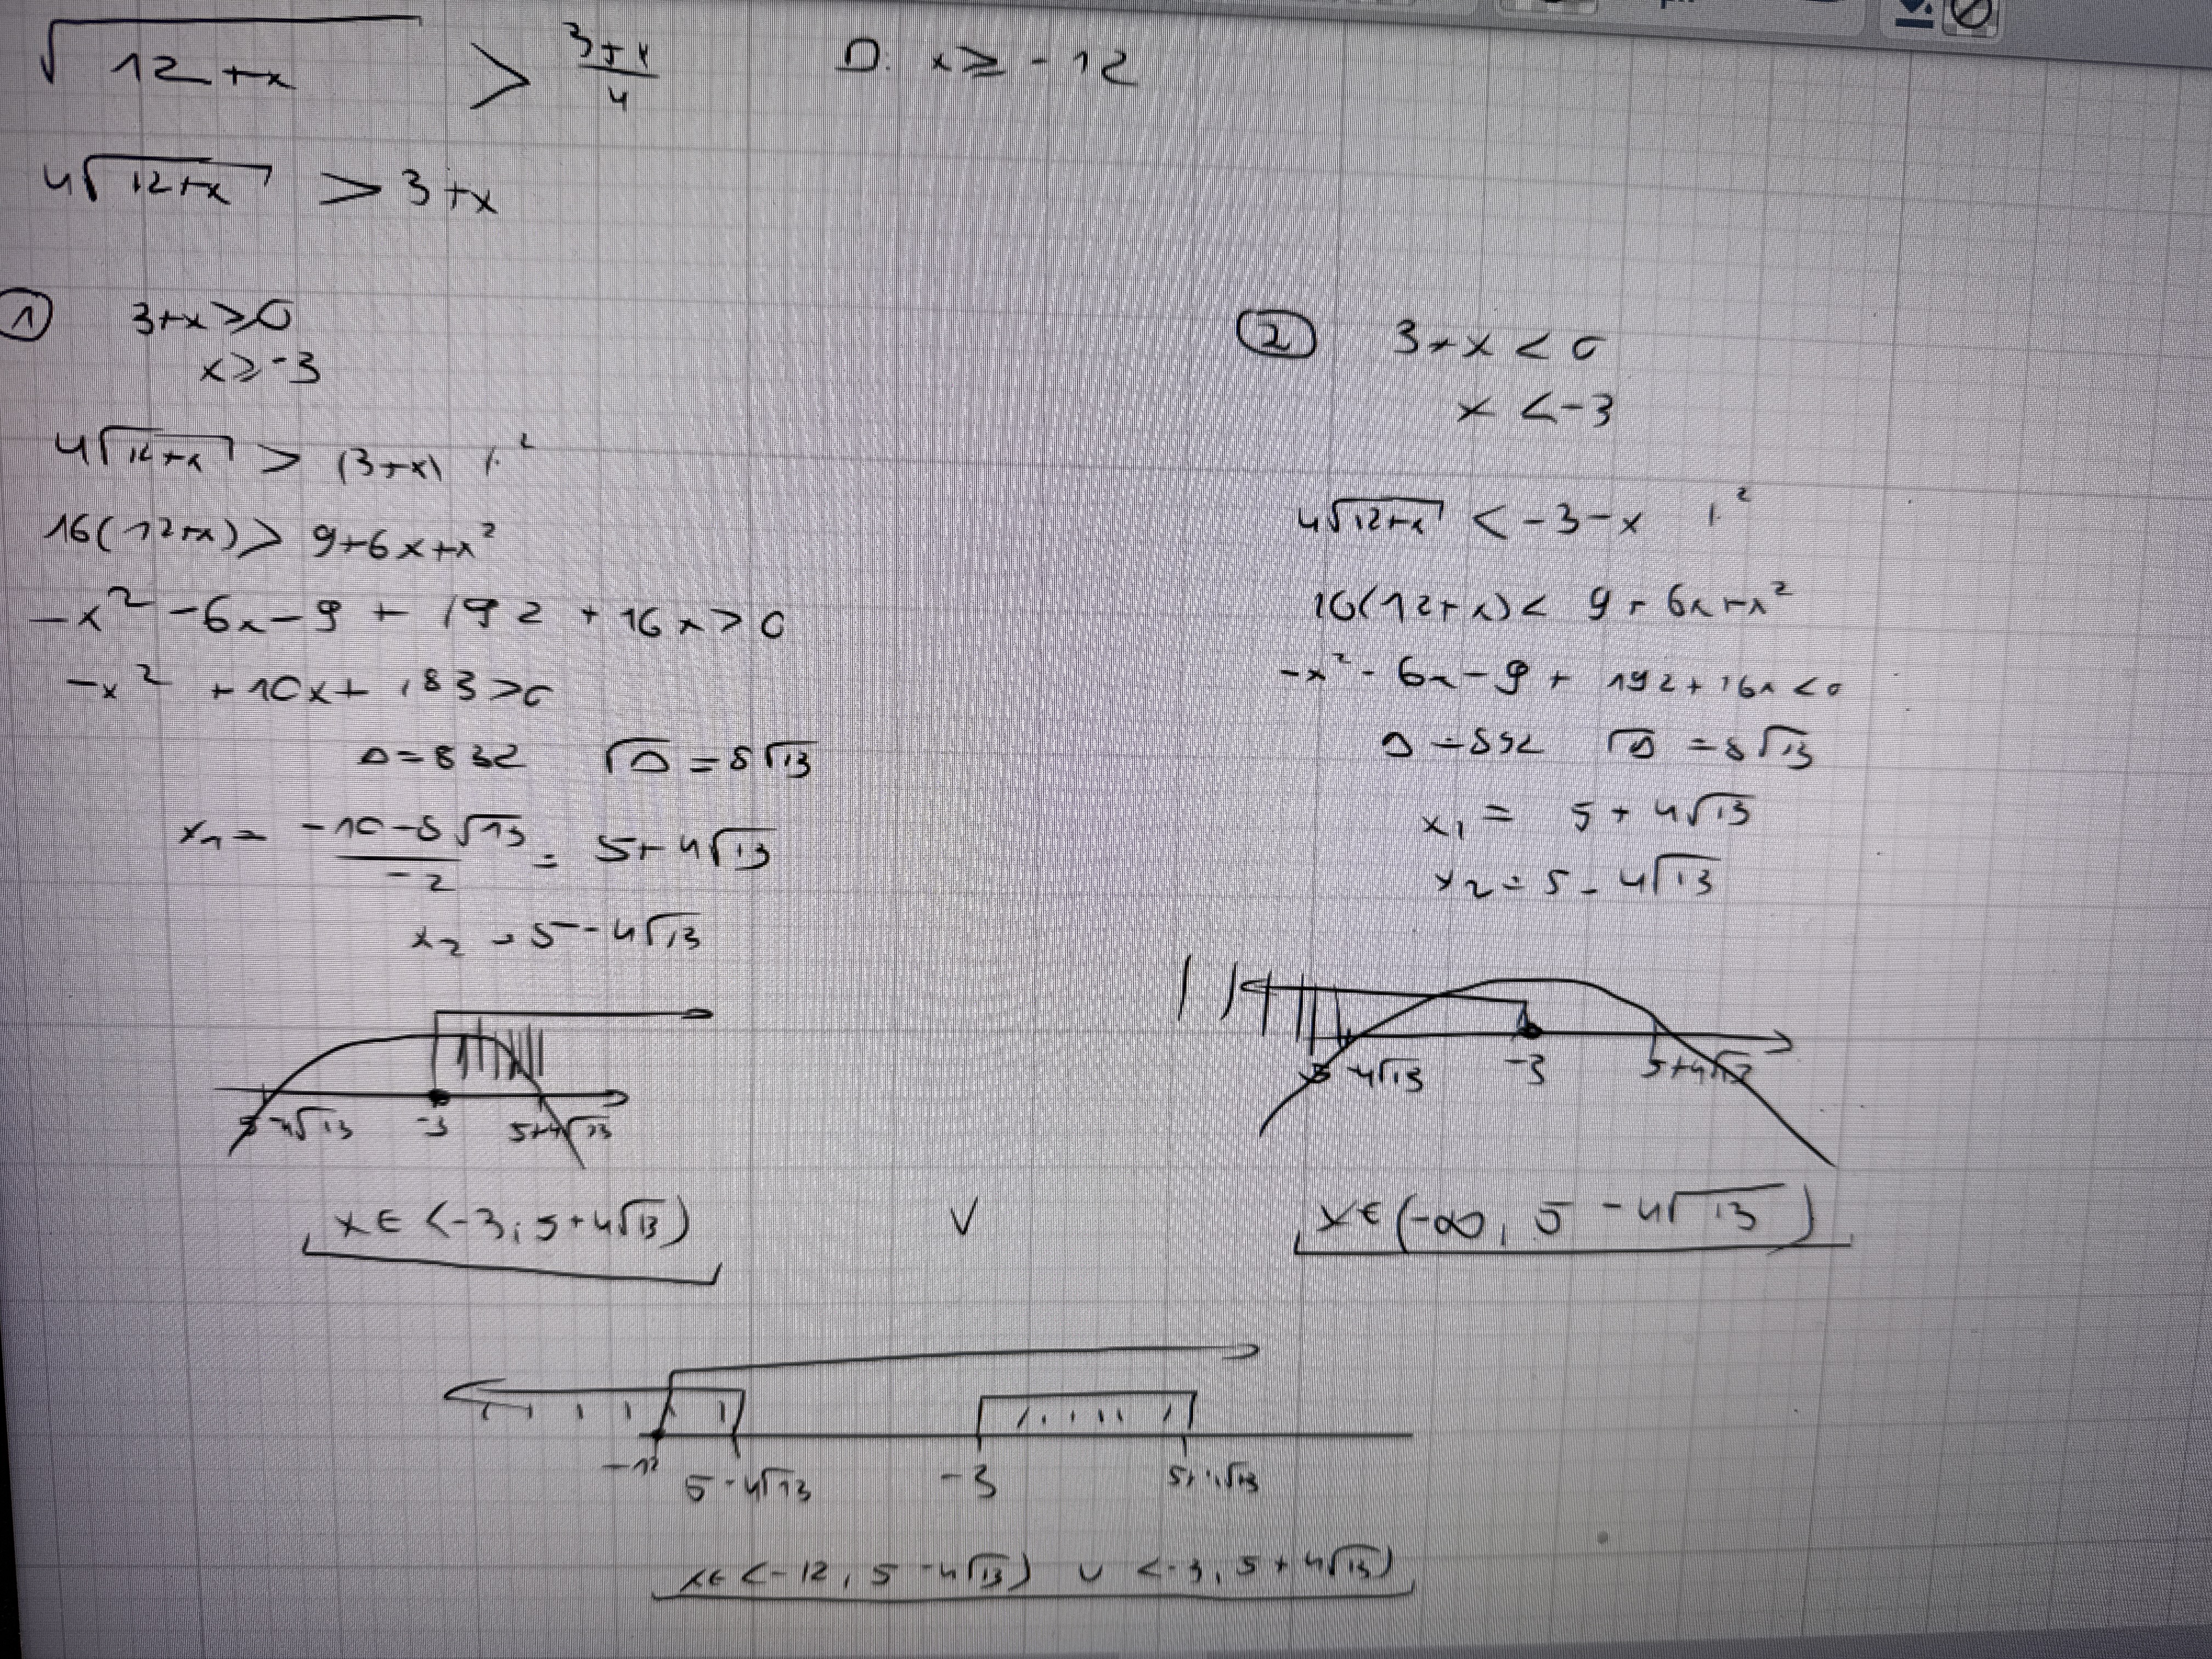 √(12+x) > (3+x)/4 D: x ≥ -12
4√(12+x) > 3+x
① 3+x ≥ 0
x ≥ -3
4√(12+x) > (3+x) /·²
16(12+x) > 9+6x+x²
-x² -6x-9 + 192 + 16x > 0
-x² + 10x + 183 > 0
Δ = 832 √Δ = 8√13
x₁ = (-10-8√13)/(-2) = 5+4√13
x₂ = 5-4√13
5-4√13 -3 5+4√13
x ∈ <-3; 5+4√13)
∨
② 3+x < 0
x < -3
4√(12+x) < -3-x /·²
16(12+x) < 9+6x+x²
-x² - 6x - 9 + 192 + 16x < 0
√Δ = 8√13
x₁ = 5 + 4√13
x₂ = 5 - 4√13
5-4√13 -3 5+4√13
x ∈ (-∞, 5 - 4√13)
-12 5-4√13 -3 5+4√13
x ∈ <-12, 5-4√13) ∪ <-3, 5+4√13)